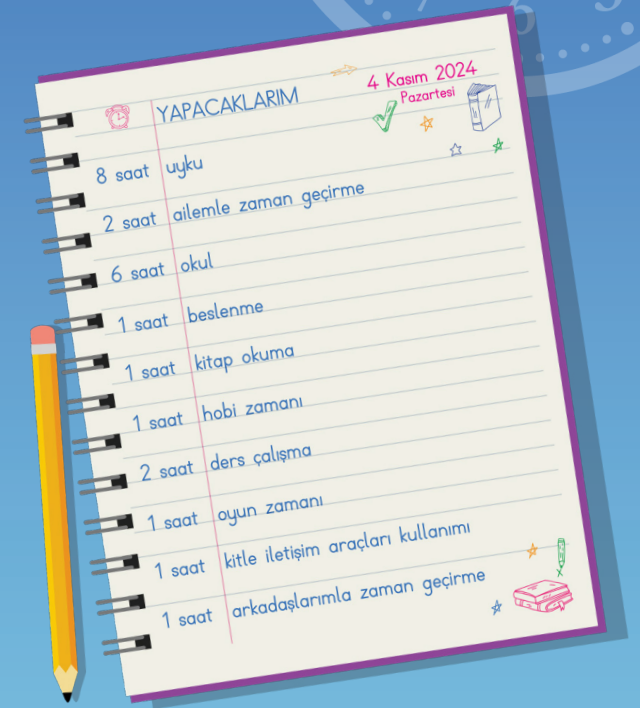 4 Kasım 2024
YAPACAKLARIM
Pazartesi
8 saat uyku
2 saat ailemle zaman geçirme
6 saat okul
1 saat beslenme
1 saat kitap okuma
1 saat hobi zamanı
2 saat ders çalışma
1 saat oyun zamanı
1 saat kitle iletişim araçları kullanımı
1 saat arkadaşlarımla zaman geçirme